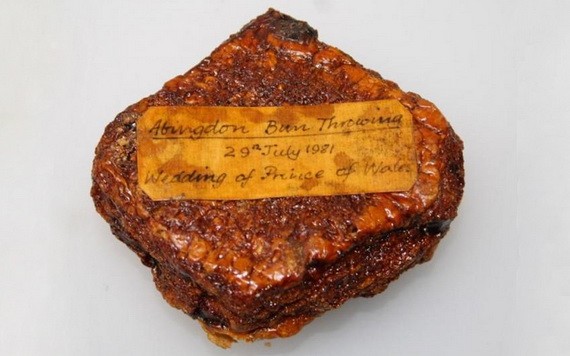 Abingdon Bun Throwing
29th July 1981
Wedding of Prince of Wales